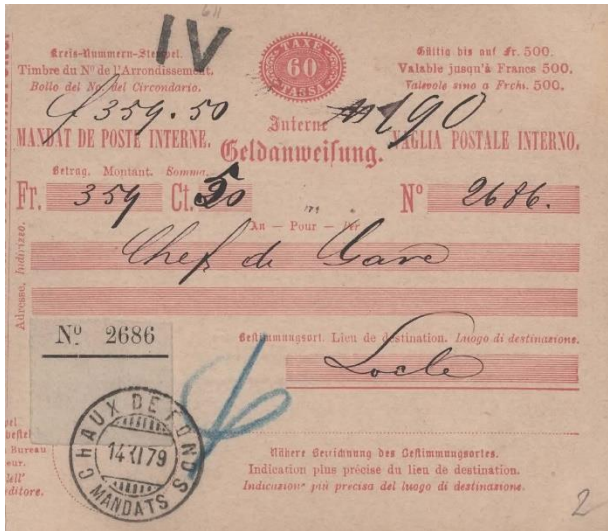 IV
Kreis-Nummern-Stempel.
Timbre du Nº de l'Arrondissement.
Bollo del No. del Circondario.
TAXE
60
TASSA
Gültig bis auf Fr. 500.
Valable jusqu'à Francs 500.
Valevole sino a Frchi. 500.
f 359.50
190
MANDAT DE POSTE INTERNE.
Interne
Geldanweisung.
VAGLIA POSTALE INTERNO.
Betrag. Montant. Somma.
Fr. 359 Ct. 50
Nº 2686.
An – Pour – Per
Adresse. Indirizzo.
Chef de Gare
Nº 2686
Bestimmungsort. Lieu de destination. Luogo di destinazione.
Locle
CHAUX DE FONDS
14 XI 79
MANDATS
Bureau
Nähere Bezeichnung des Bestimmungsortes.
Indication plus précise du lieu de destination.
Indicazione più precisa del luogo di destinazione.
2